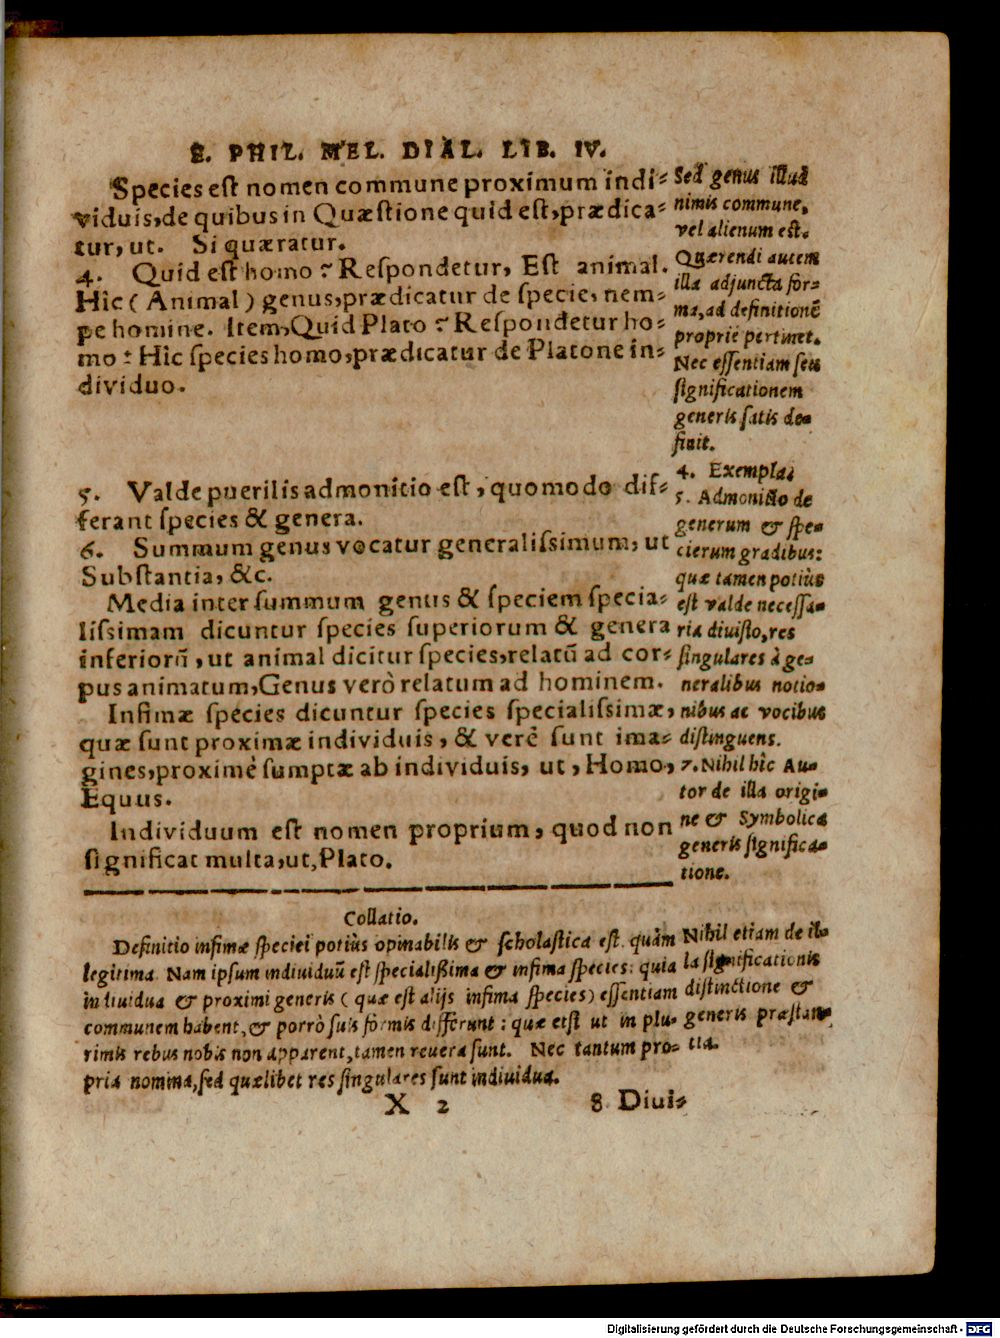 E. PHIL. MEL. DIAL. LIB. IV.
Species est nomen commune proximum indi-
viduis, de quibus in Quæstione quid est, prædica-
tur, ut. Si quæratur.
4. Quid est homo? Respondetur, Est animal.
Hic (Animal) genus, prædicatur de specie, nem-
pe homine. Item, Quid Plato? Respondetur ho-
mo: Hic species homo, prædicatur de Platone in-
dividuo.
5. Valde puerilis admonitio est, quomodo dif-
ferant species & genera.
6. Summum genus vocatur generalissimum, ut
Substantia, &c.
Media inter summum genus & speciem specia-
lissimam dicuntur species superiorum & genera
inferiorū, ut animal dicitur species, relatū ad cor-
pus animatum, Genus verò relatum ad hominem.
Infimæ species dicuntur species specialissimæ,
quæ sunt proximæ individuis, & verè sunt ima-
gines, proximè sumptæ ab individuis, ut, Homo,
Equus.
Individuum est nomen proprium, quod non
significat multa, ut, Plato.
Sed genus illud
nimis commune,
vel alienum est.
Quærendi autem
illa adjuncta for-
ma, ad definitionē
propriè pertinet.
Nec essentiam seu
significationem
generis satis de-
finit.
4. Exempla,
5. Admonitio de
generum & spe-
cierum gradibus:
quæ tamen potiùs
est valde necessa-
ria divisio, res
singulares à ge-
neralibus notio-
nibus ac vocibus
distinguens.
7. Nihil hìc Au-
tor de illa origi-
ne & Symbolica
generis significa-
tione.
Collatio.
Definitio infimæ speciei potiùs opinabilis & scholastica est. quàm
legitima. Nam ipsum indiuiduū est specialißima & infima species: quia
indiuidua & proximi generis (quæ est alijs infima species) essentiam
communem habent, & porrò suis formis differunt: quæ etsi ut in plu-
rimis rebus nobis non apparent, tamen reuera sunt. Nec tantum pro-
pria nomina, sed quælibet res singulares sunt indiuidua.
Nihil etiam de il-
la significationis
distinctione &
generis præstan-
tia.
X 2 8 Diui-
Digitalisierung gefördert durch die Deutsche Forschungsgemeinschaft - DFG